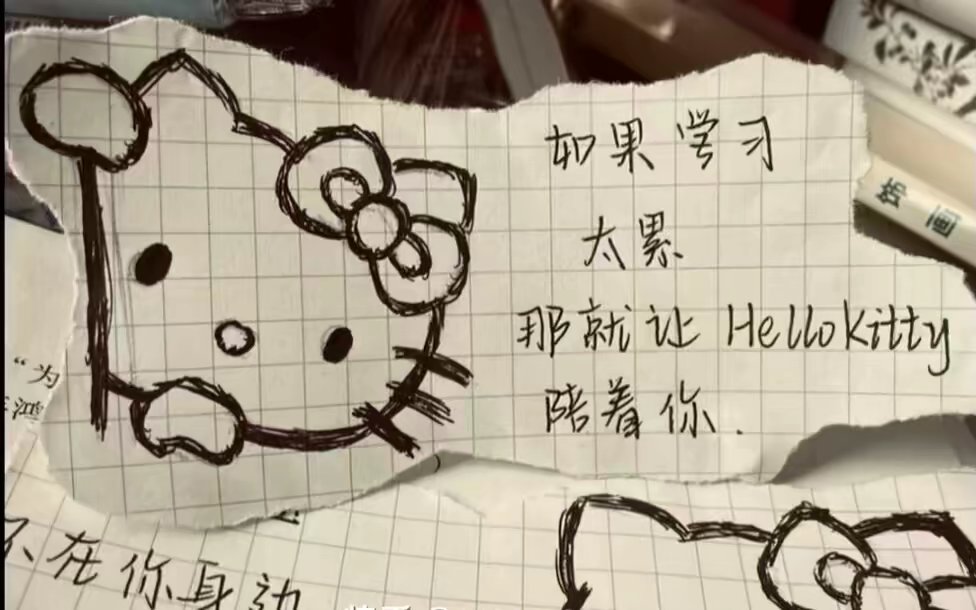 如果学习
太累
那就让 Hellokitty
陪着你.
饰画
“为
鸿
不在你身边